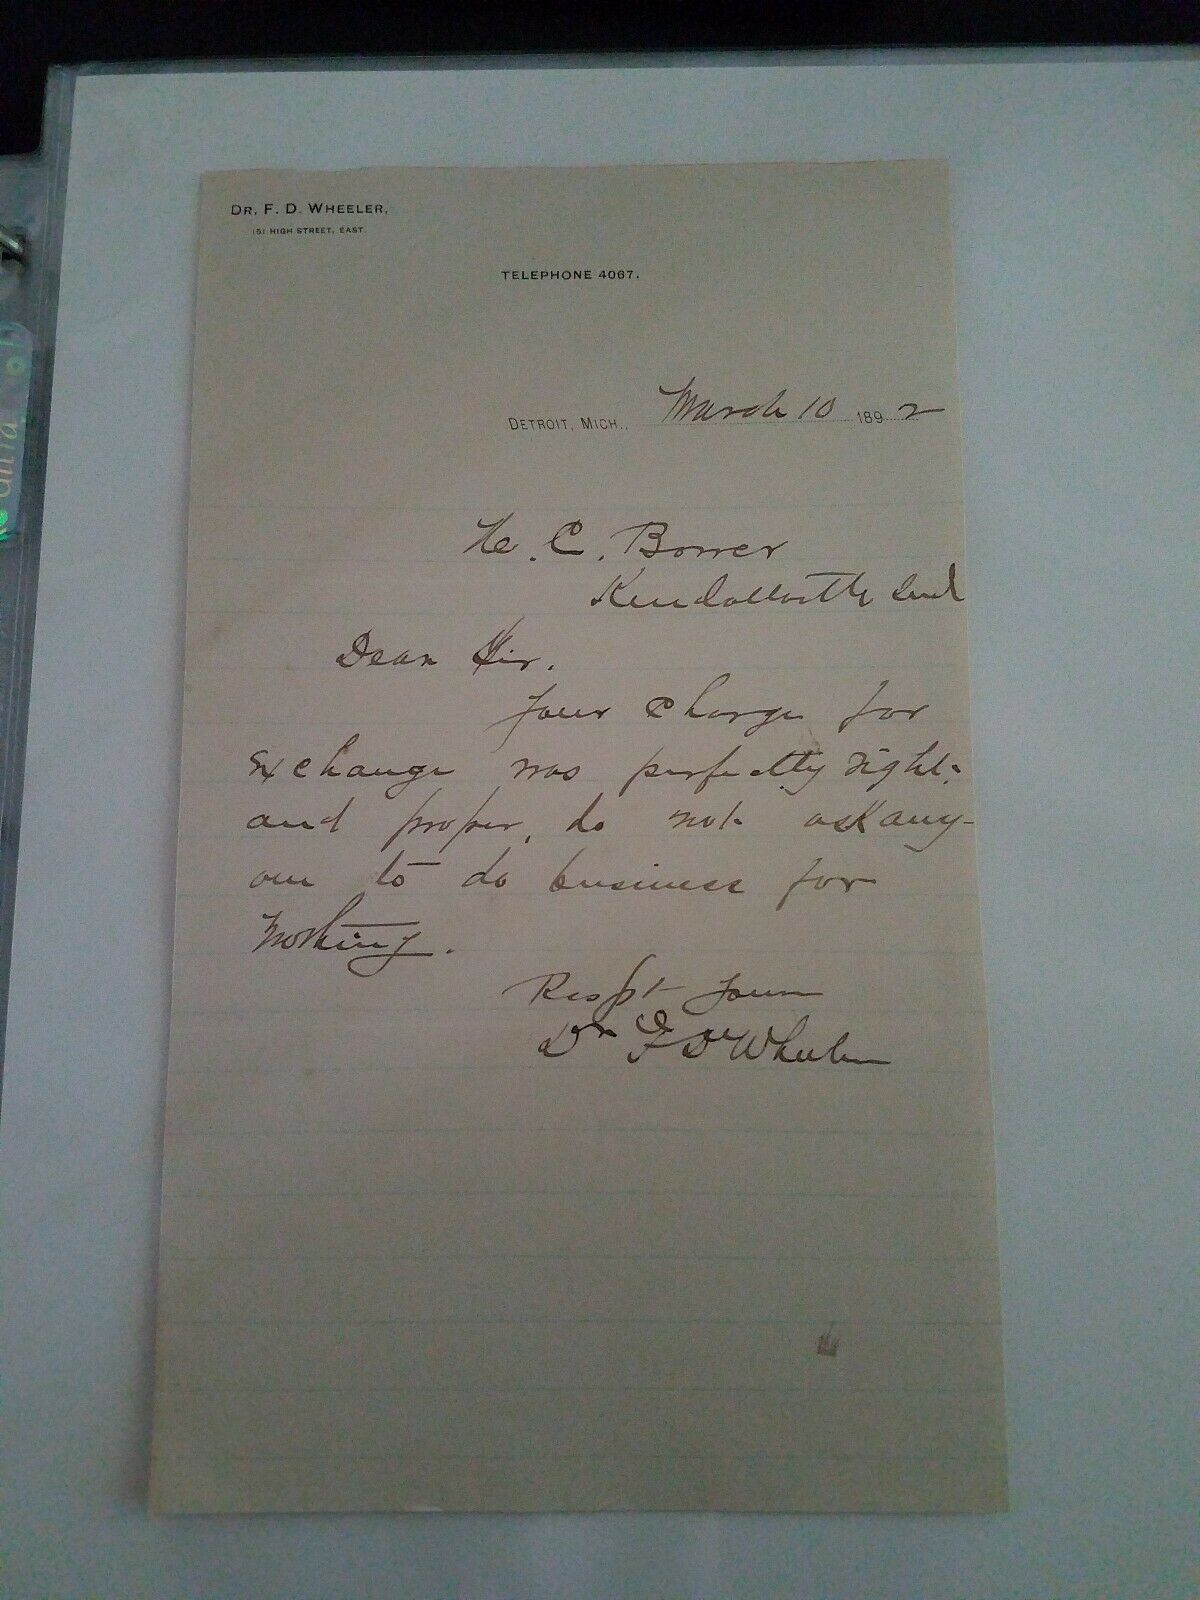 DR. F. D. WHEELER,
151 HIGH STREET, EAST.
TELEPHONE 4067.
DETROIT, MICH., March 10 1892
C. Bower
Kendallville Ind
Dear Sir.
Your charge for
exchange was perfectly right
and proper, do not ask any-
one to do business for
nothing.
Respt Yours
Dr F D Wheeler